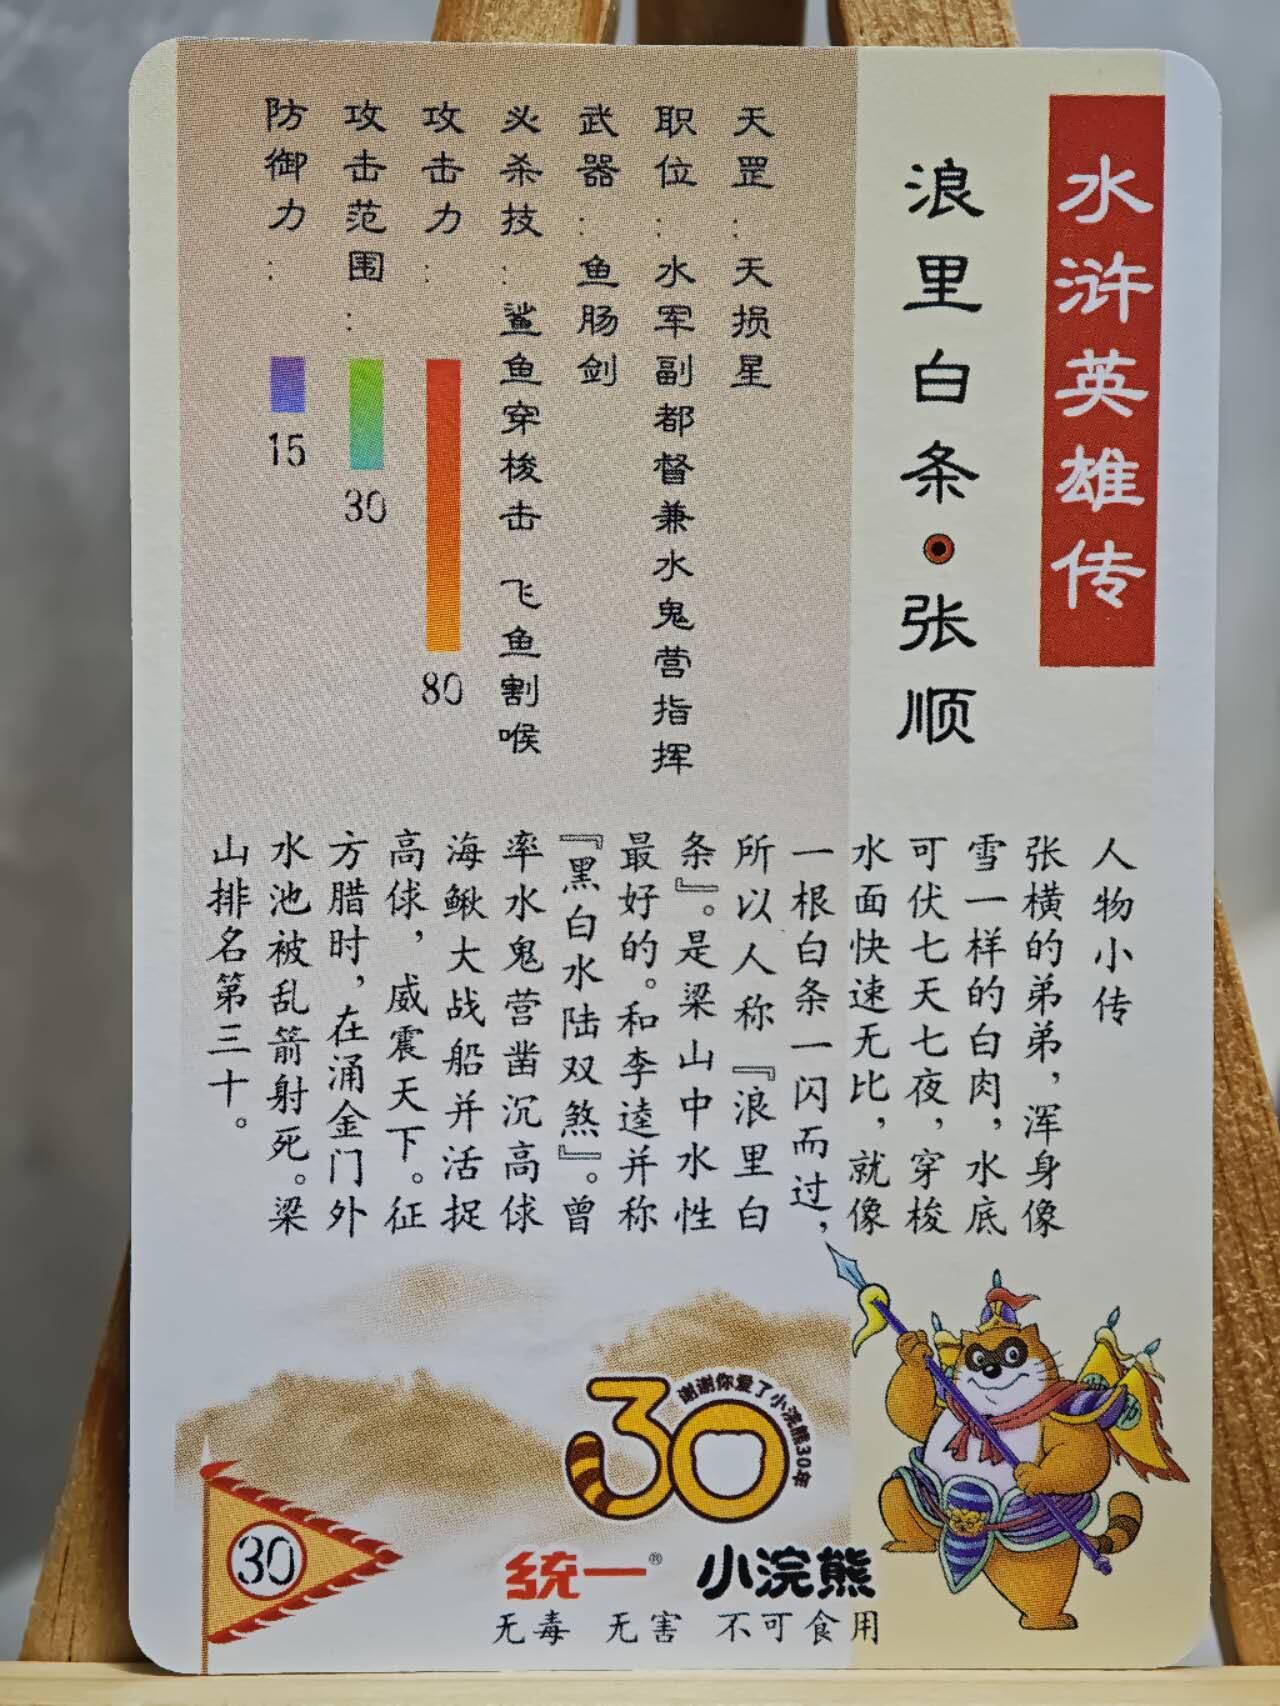 水浒英雄传
浪里白条·张顺
天罡：天损星
职位：水军副都督兼水鬼营指挥
武器：鱼肠剑
必杀技：鲨鱼穿梭击 飞鱼割喉
攻击力：80
攻击范围：30
防御力：15
人物小传
张横的弟弟，浑身像
雪一样的白肉，水底
可伏七天七夜，穿梭
水面快速无比，就像
一根白条一闪而过，
所以人称『浪里白
条』。是梁山中水性
最好的。和李逵并称
『黑白水陆双煞』。曾
率水鬼营凿沉高俅
海鳅大战船并活捉
高俅，威震天下。征
方腊时，在涌金门外
水池被乱箭射死。梁
山排名第三十。
30
谢谢你爱了小浣熊30年
30
统一® 小浣熊
无毒 无害 不可食用